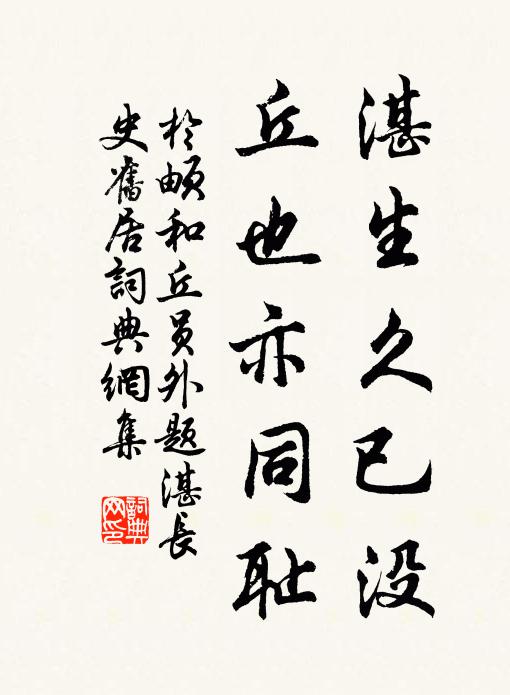 湛生久已没
丘也亦同耻
於頔和丘員外题湛長
史舊居詞典網集
詞典
网印